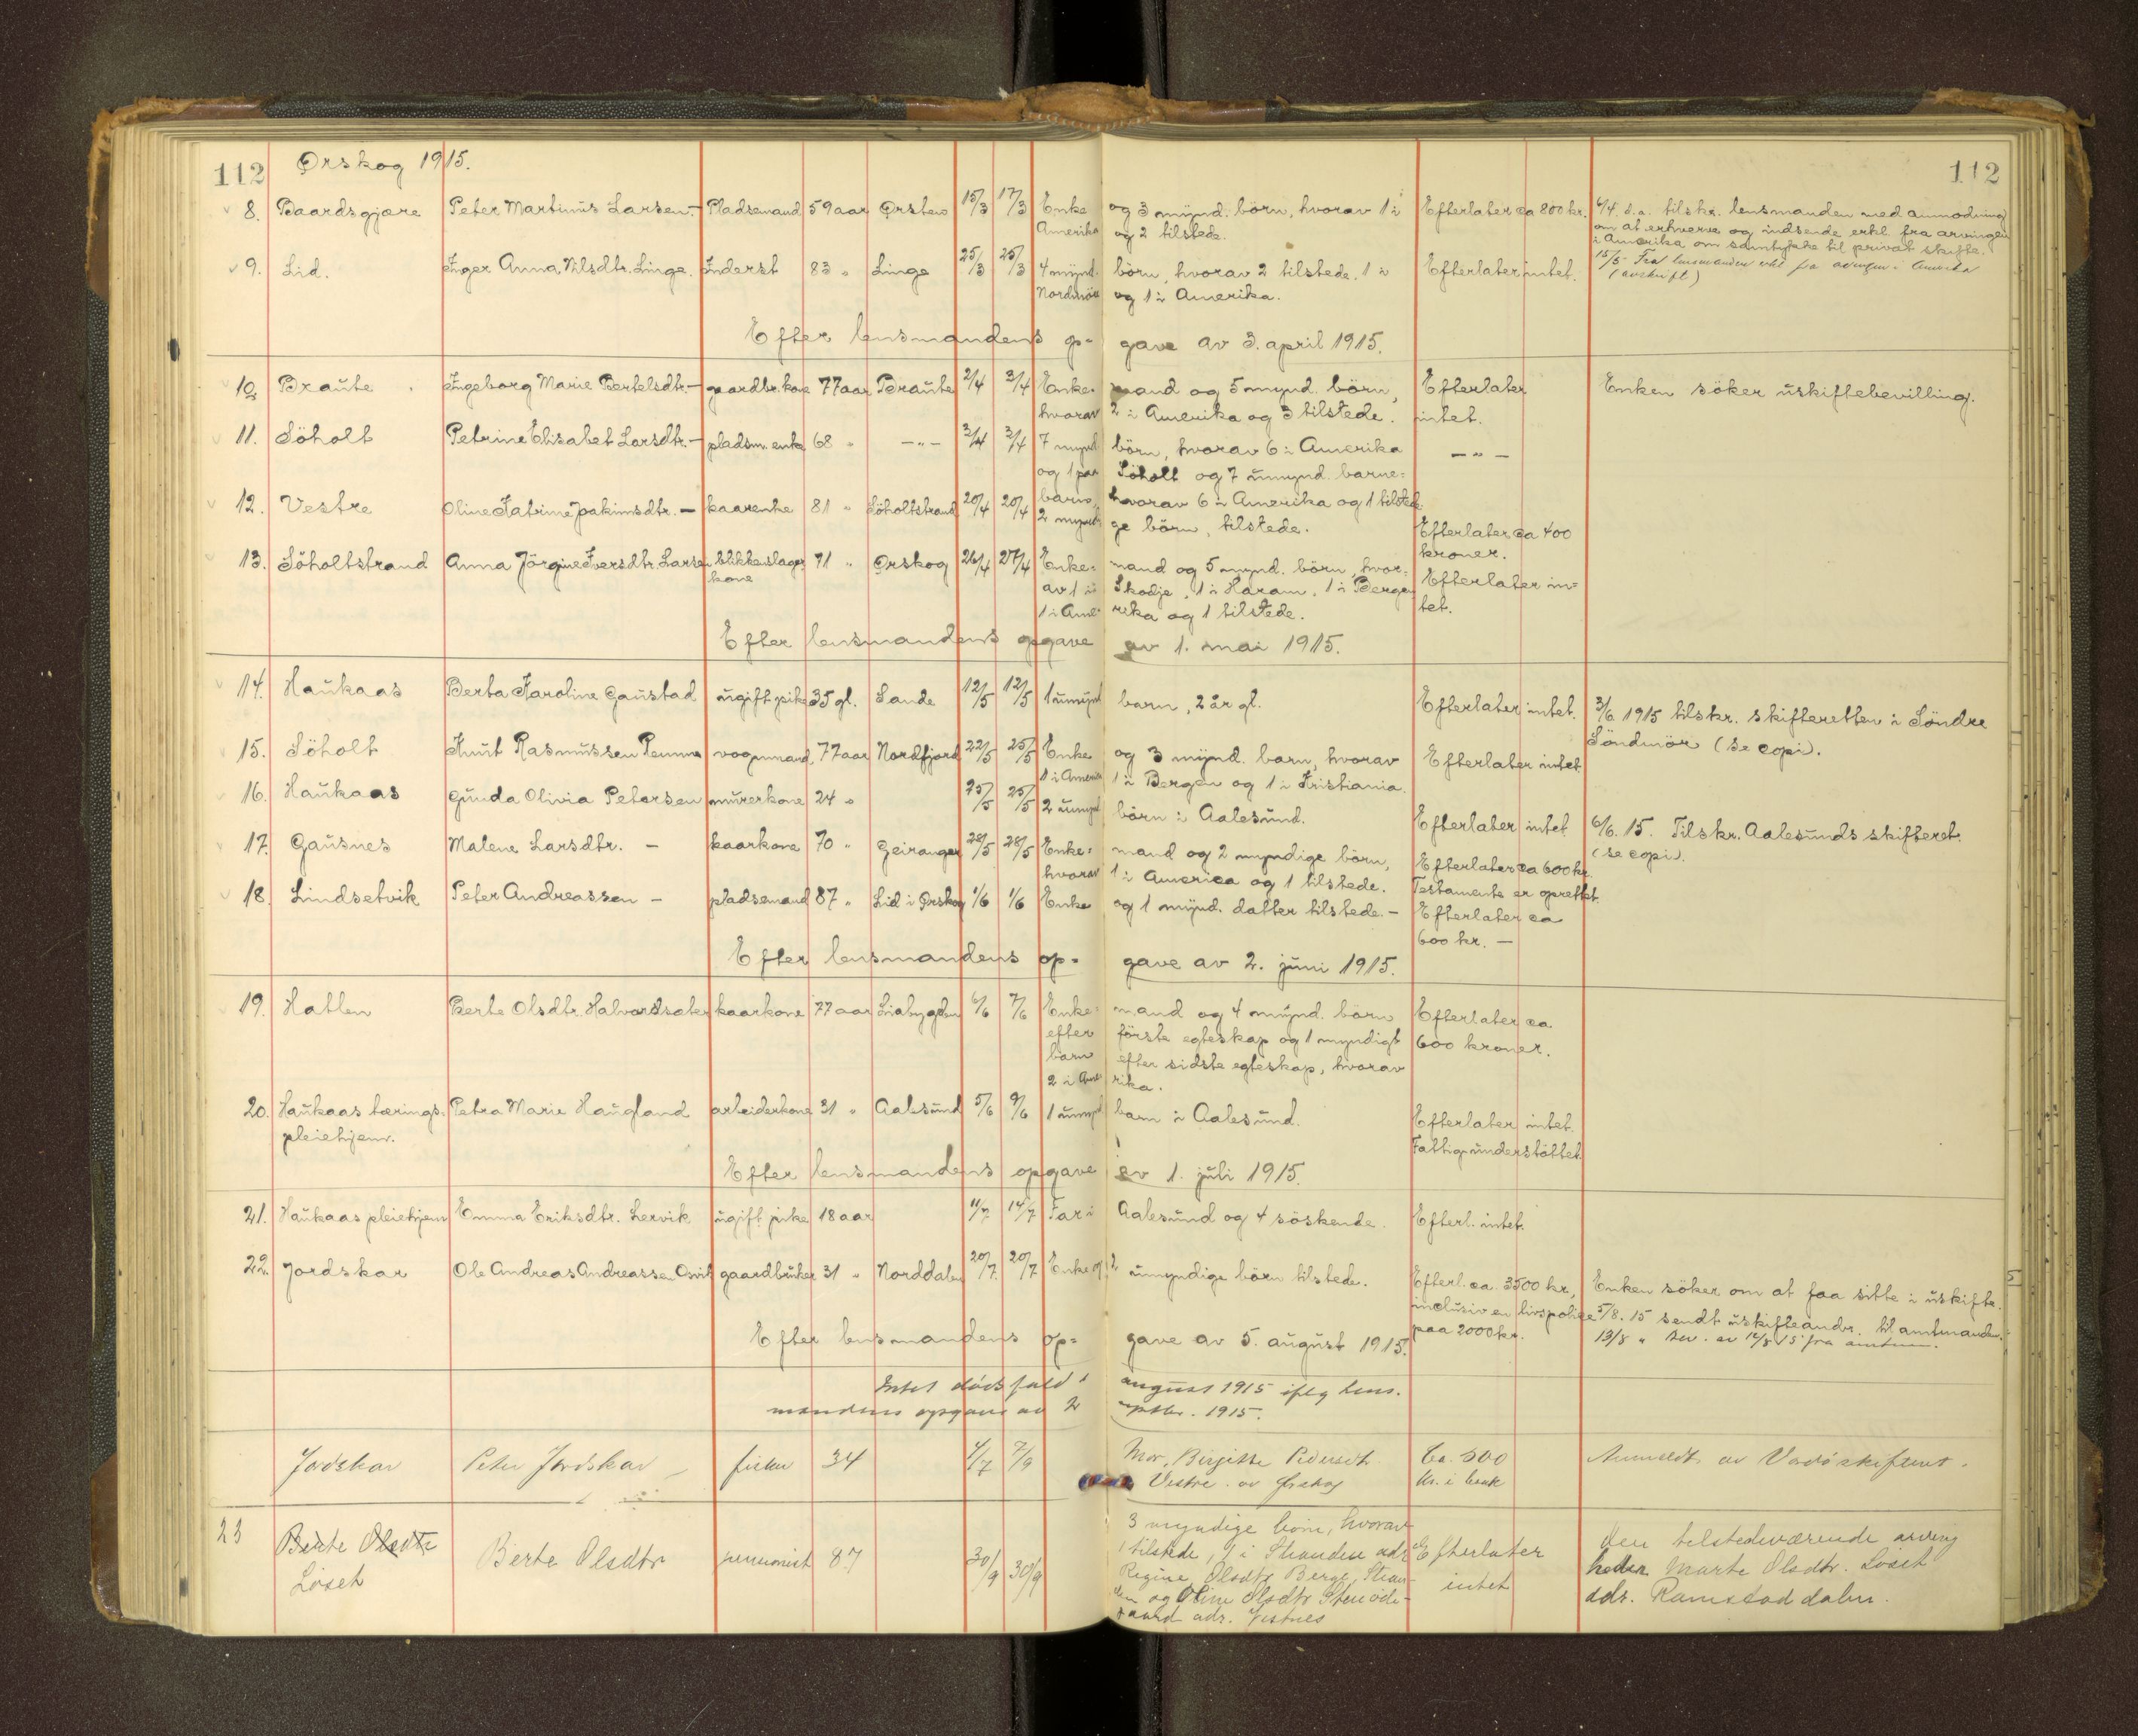 112 Ørskog 1915. 112
8. Baardsgjære Peter Martinus Larsen.- Pladsemand 59 aar Ørsten 15/3 17/3 Enke og 3 mynd. börn, hvorav 1 i Efterlater ca 800 kr. 6/4 d.a. tilskr. lensmanden med anmodning
Amerika og 2 tilstede. om at erhverve og indsende erkl. fra arvingen
i Amerika om samtykke til privat skifte.
9. Lid. Inger Anna Nilsdtr. Linge. Inderst 83 " Linge 25/3 25/3 4 mynd. börn, hvorav 2 tilstede, 1 i Efterlater intet. 15/5 Fra lensmanden erkl. fra arvingen i Amerika
Nordmör og 1 i Amerika. (avskrift)
Efter lensmandens op= gave av 3. april 1915.
10. Braute Ingeborg Marie Bertelsdtr.- gaardbr. kone 77 aar Braute 2/4 3/4 Enke= mand og 5 mynd. börn, Efterlater Enken söker uskiftebevilling.
hvorav 2 i Amerika og 3 tilstede. intet.
11. Söholt Petrine Elisabet Larsdtr.- pladsm. enke 68 " -"- 3/4 3/4 7 mynd börn, hvorav 6 i Amerika -"-
og 1 paa Söholt og 7 umynd. barne=
barn, hvorav 6 i Amerika og 1 tilstede
12. Vestre Oline Katrine Joakimsdtr. - kaarenke 81 " Söholtstrand 20/4 20/4 2 myndi ge börn, tilstede. Efterlater ca 400
kroner.
13. Söholtstrand Anna Jörgine Iversdtr. Larsen blikkenslager 71 " Ørskog 26/4 27/4 Enke= mand og 5 mynd. börn, hvor= Efterlater in=
kone av 1 i Skodje, 1 i Haram, 1 i Bergen tet.
1 i Ame rika og 1 tilstede.
Efter lensmandens opgave av 1. mai 1915.
14. Haukaas Berta Karoline Gaustad ugift pike 35 gl. Sande 12/5 12/5 1 umynd barn, 2 år gl. Efterlater intet. 3/6 1915 tilskr. skifteretten i Söndre
Söndmör (se copi).
15. Söholt Knut Rasmussen Remme vognmand, 77 aar Nordfjord 22/5 25/5 Enke og 3 mynd. barn, hvorav Efterlater intet.
1 i Amerika 1 i Bergen og 1 i Kristiania.
16. Haukaas Gunda Olivia Petersen murerkone 24 " 25/5 25/5 2 umynd börn i Aalesund. Efterlater intet 6/6. 15. Tilskr. Aalesunds skifteret.
(se copi).
17. Gausnes Malene Larsdtr. - kaarkone 70 " Geiranger 28/5 28/5 Enke= mand og 2 myndige börn, Efterlater ca 600 kr.
hvorav 1 i America og 1 tilstede. Testamente er oprettet.
18. Lindsetvik Peter Andreassen - pladsemand 87 " Lid i Ørskog 1/6 1/6 Enke og 1 mynd. datter tilstede. - Efterlater ca
600 kr. -
Efter lensmandens op= gave av 2. juni 1915.
19. Hatlen Berte Olsdtr. Halvardsæter kaarkone 77 aar Liabygden 6/6 7/6 Enke= mand og 4 mynd. börn Efterlater ca
efter förste egteskap og 1 myndigt 600 kroner.
barn efter sidste egteskap, hvorav
2 i Ame rika.
20. Haukaas tærings= Petra Marie Haugland arbeiderkone 31 " Aalesund 5/6 9/6 1 umynd barn i Aalesund. Efterlater intet.
pleiehjem. Fattigunderstöttet.
Efter lensmandens opgave av 1. juli 1915.
21. Haukaas pleiehjem Emma Eriksdtr. Lervik ugift pike 18 aar 11/7 14/7 Far i Aalesund og 4 söskende. Efterl. intet.
22. Jordskar Ole Andreas Andreassen Osvik gaardbruker 31 " Norddalen 20/7 20/7 Enke og 2 umyndige börn tilstede. Efterl. ca. 3500 kr., Enken söker om at faa sitte i uskifte.
inclusiv en livspolise 5/8. 15 sendt uskifteandr. til amtmanden.
paa 2000 kr. 13/8 " av 12/8 15 fra amtm.
Efter lensmandens op= gave av 5. august 1915.
Intet dödsfald i august 1915 iflg. lens.
mandens opgave av 2 septbr. 1915.
Jordskar Peter Jordskar - fisker 34 7/9 Mor, Birgitte Pedersdt. Ca. 500 Anmeldt av Vardö skifteret.
Vestre av Ørskog kr. i bank
23 Berte Olsdtr Berte Olsdtr pensionist 87 30/9 30/9 3 myndige börn, hvorav Efterlater den tilstedeværende arving
Löset 1 tilstede, 1 i Stranden adr. intet heder Marte Olsdtr. Löset
Regine Olsdtr Berge, Stran= adr. Ramstaddalen.
den og Oline Olsdtr Steinöde-
gaard adr. Vestnes